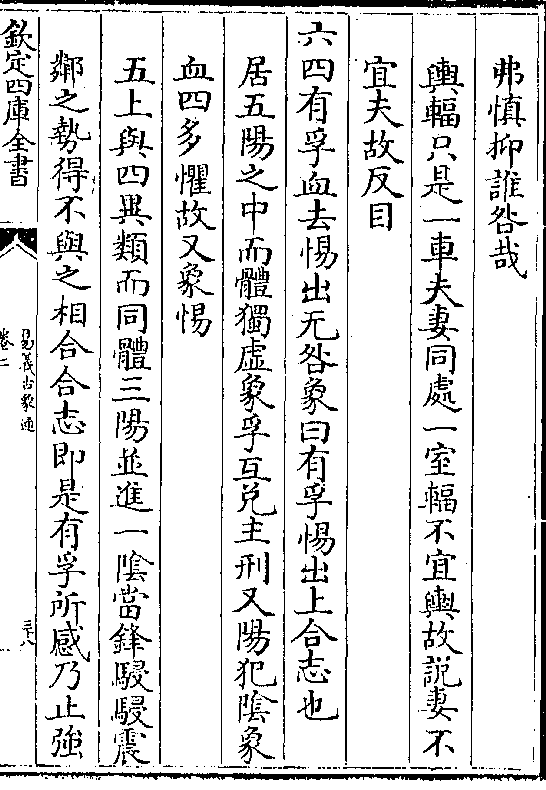 弗慎抑誰咎哉
輿輻只是一車夫妻同處一室輻不宜輿故説妻不
宜夫故反目
六四有孚血去惕出无咎象曰有孚惕出上合志也
居五陽之中而體獨虚象孚互兑主刑又陽犯陰象
血四多懼故又象惕
五上與四異類而同體三陽並進一陰當鋒駸駸震
鄰之勢得不與之相合合志即是有孚所感乃止強
欽定四庫全書
易義古象通
卷二
三十八